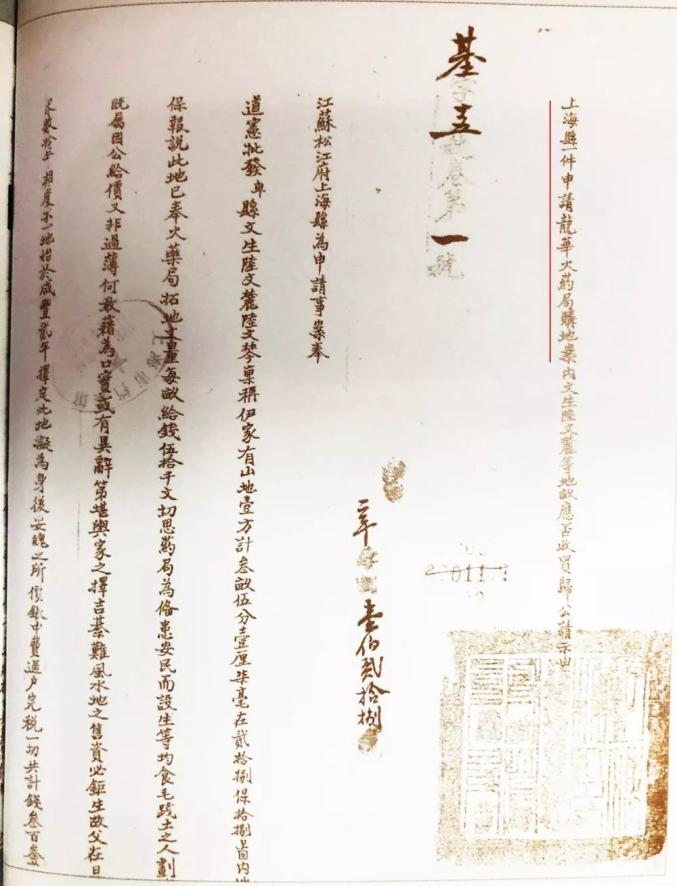 上海縣一件申請龍華火葯局購地案內文生陸文麓等地畝應否收買歸公請示由
基字五號卷第一號
壹伯貳拾捌
江蘇松江府上海縣為申請事案奉
道憲批發卑縣文生陸文麓陸文棽稟稱伊家有山地壹方計叁畝伍分壹厘柒毫在貳拾捌保拾捌啚內
保報說此地已奉火藥局拓地丈量每畝給錢伍拾千文切思葯局為俻患安民而設生等均食毛践土之人劃
既属因公給價又非過薄何敢藉為口實或有異辭第堪輿家之擇吉綦難風水地之售資必鉅生故父在日
相度不一地拍於咸豐貳年擇定此地擬為身後安魄之所價鍁中費過戶完税一切共计錢叁百叁